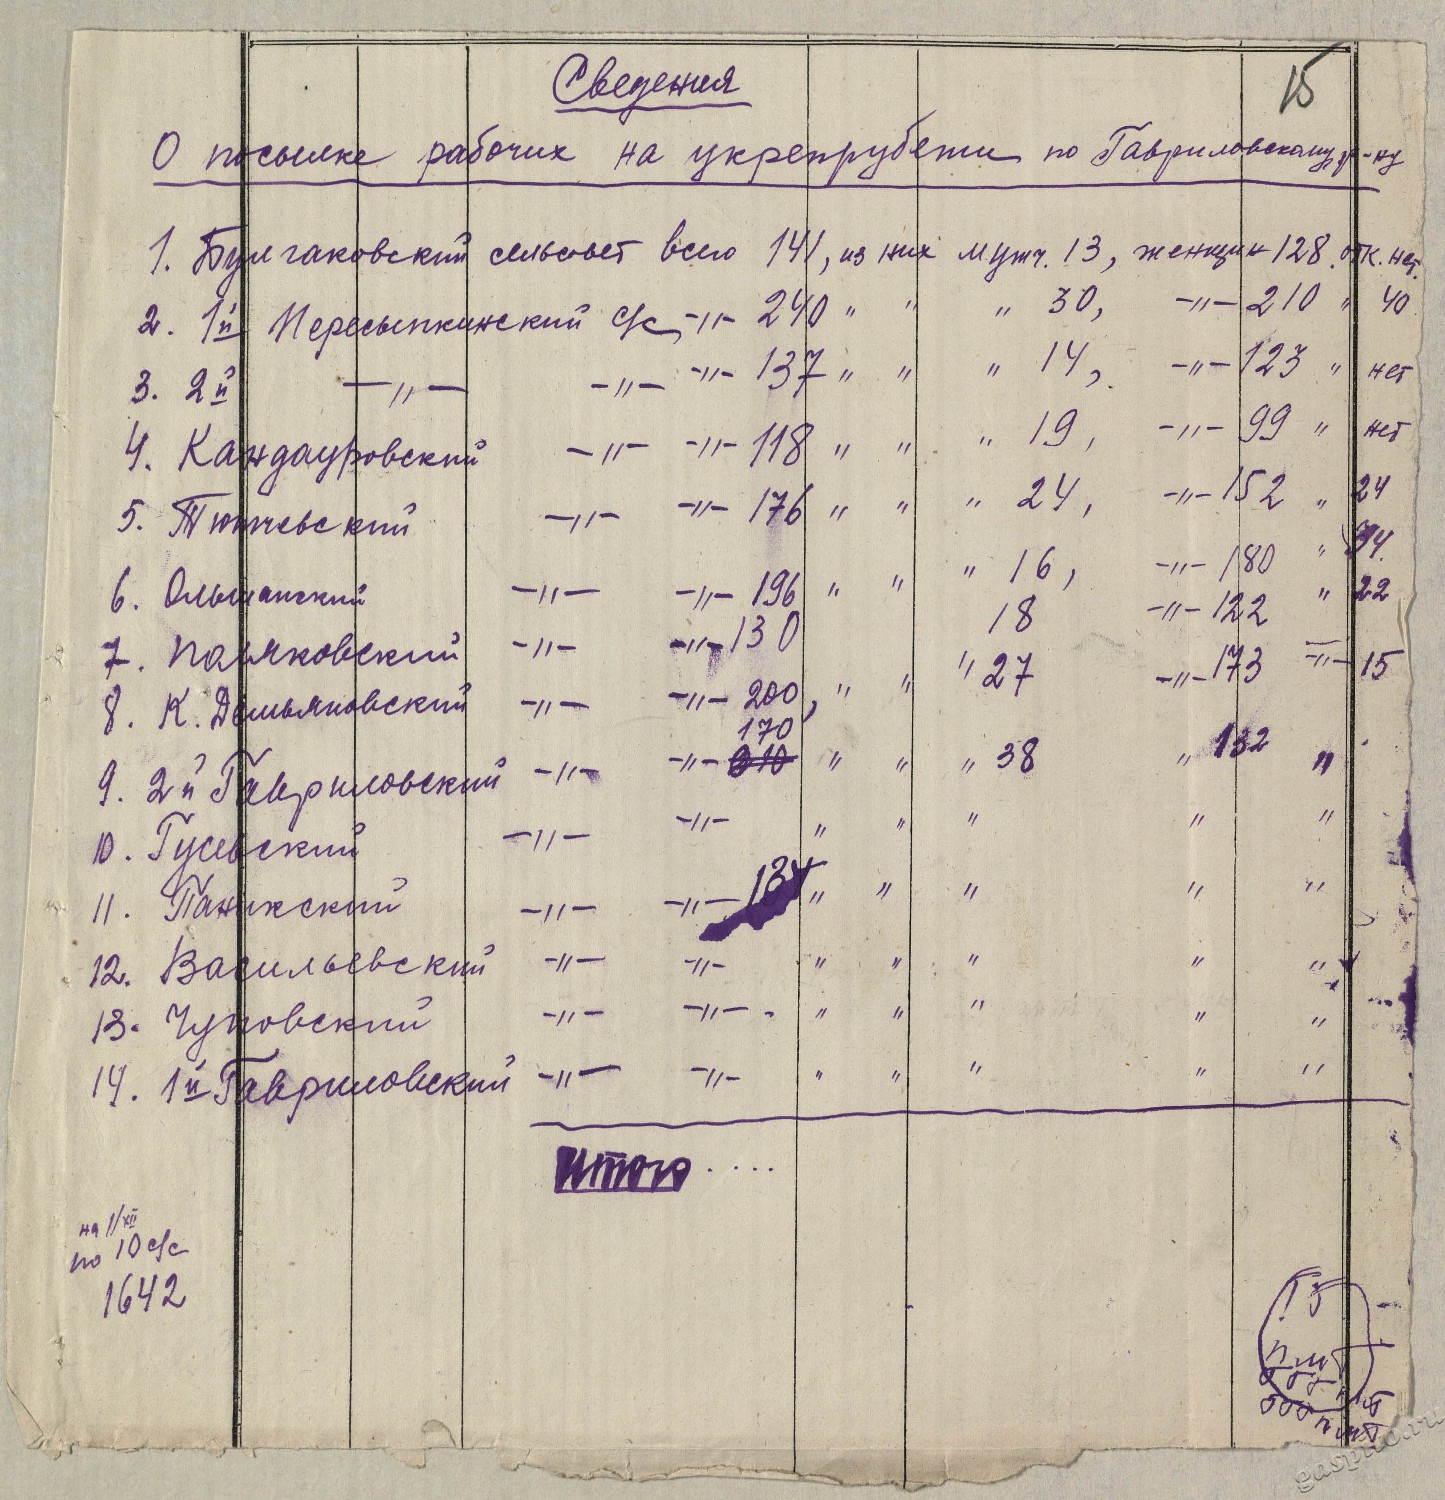 15
Сведения
О посылке рабочих на укрепрубежи по Гавриловскому р-ну
1. Булгаковский сельсовет всего 141, из них мужч. 13, женщин 128. отк. нет.
2. 1й Пересыпкинский с/с, -"- 240 " " " 30, -"- 210 " 40
3. 2й -"- -"- -"- 137 " " " 14, -"- 123 " нет
4. Кандауровский -"- -"- 118 " " " 19, -"- 99 " нет
5. Тютчевский -"- -"- 176 " " " 24, -"- 152 " 24
6. Ольшанский -"- -"- 196 " " " 16, -"- 180 " 34.
7. Поляковский -"- -"- 130 18 -"- 122 " 22
8. К. Демьяновский -"- -"- 200, " " " 27 -"- 173 -"- 15
170
9. 2й Гавриловский -"- -"- 210 " " " 38 " 132 "
10. Гусевский -"- -"- " " " " "
11. Паникский -"- -"- 134 " " " " "
12. Васильевский -"- -"- " " " " "
13. Чуповский -"- -"- . " " " " "
14. 1й Гавриловский -"- -"- " " " " "
Итого ....
на 1/XII
по 10 с/с
1642
15
500
gaspito.ru